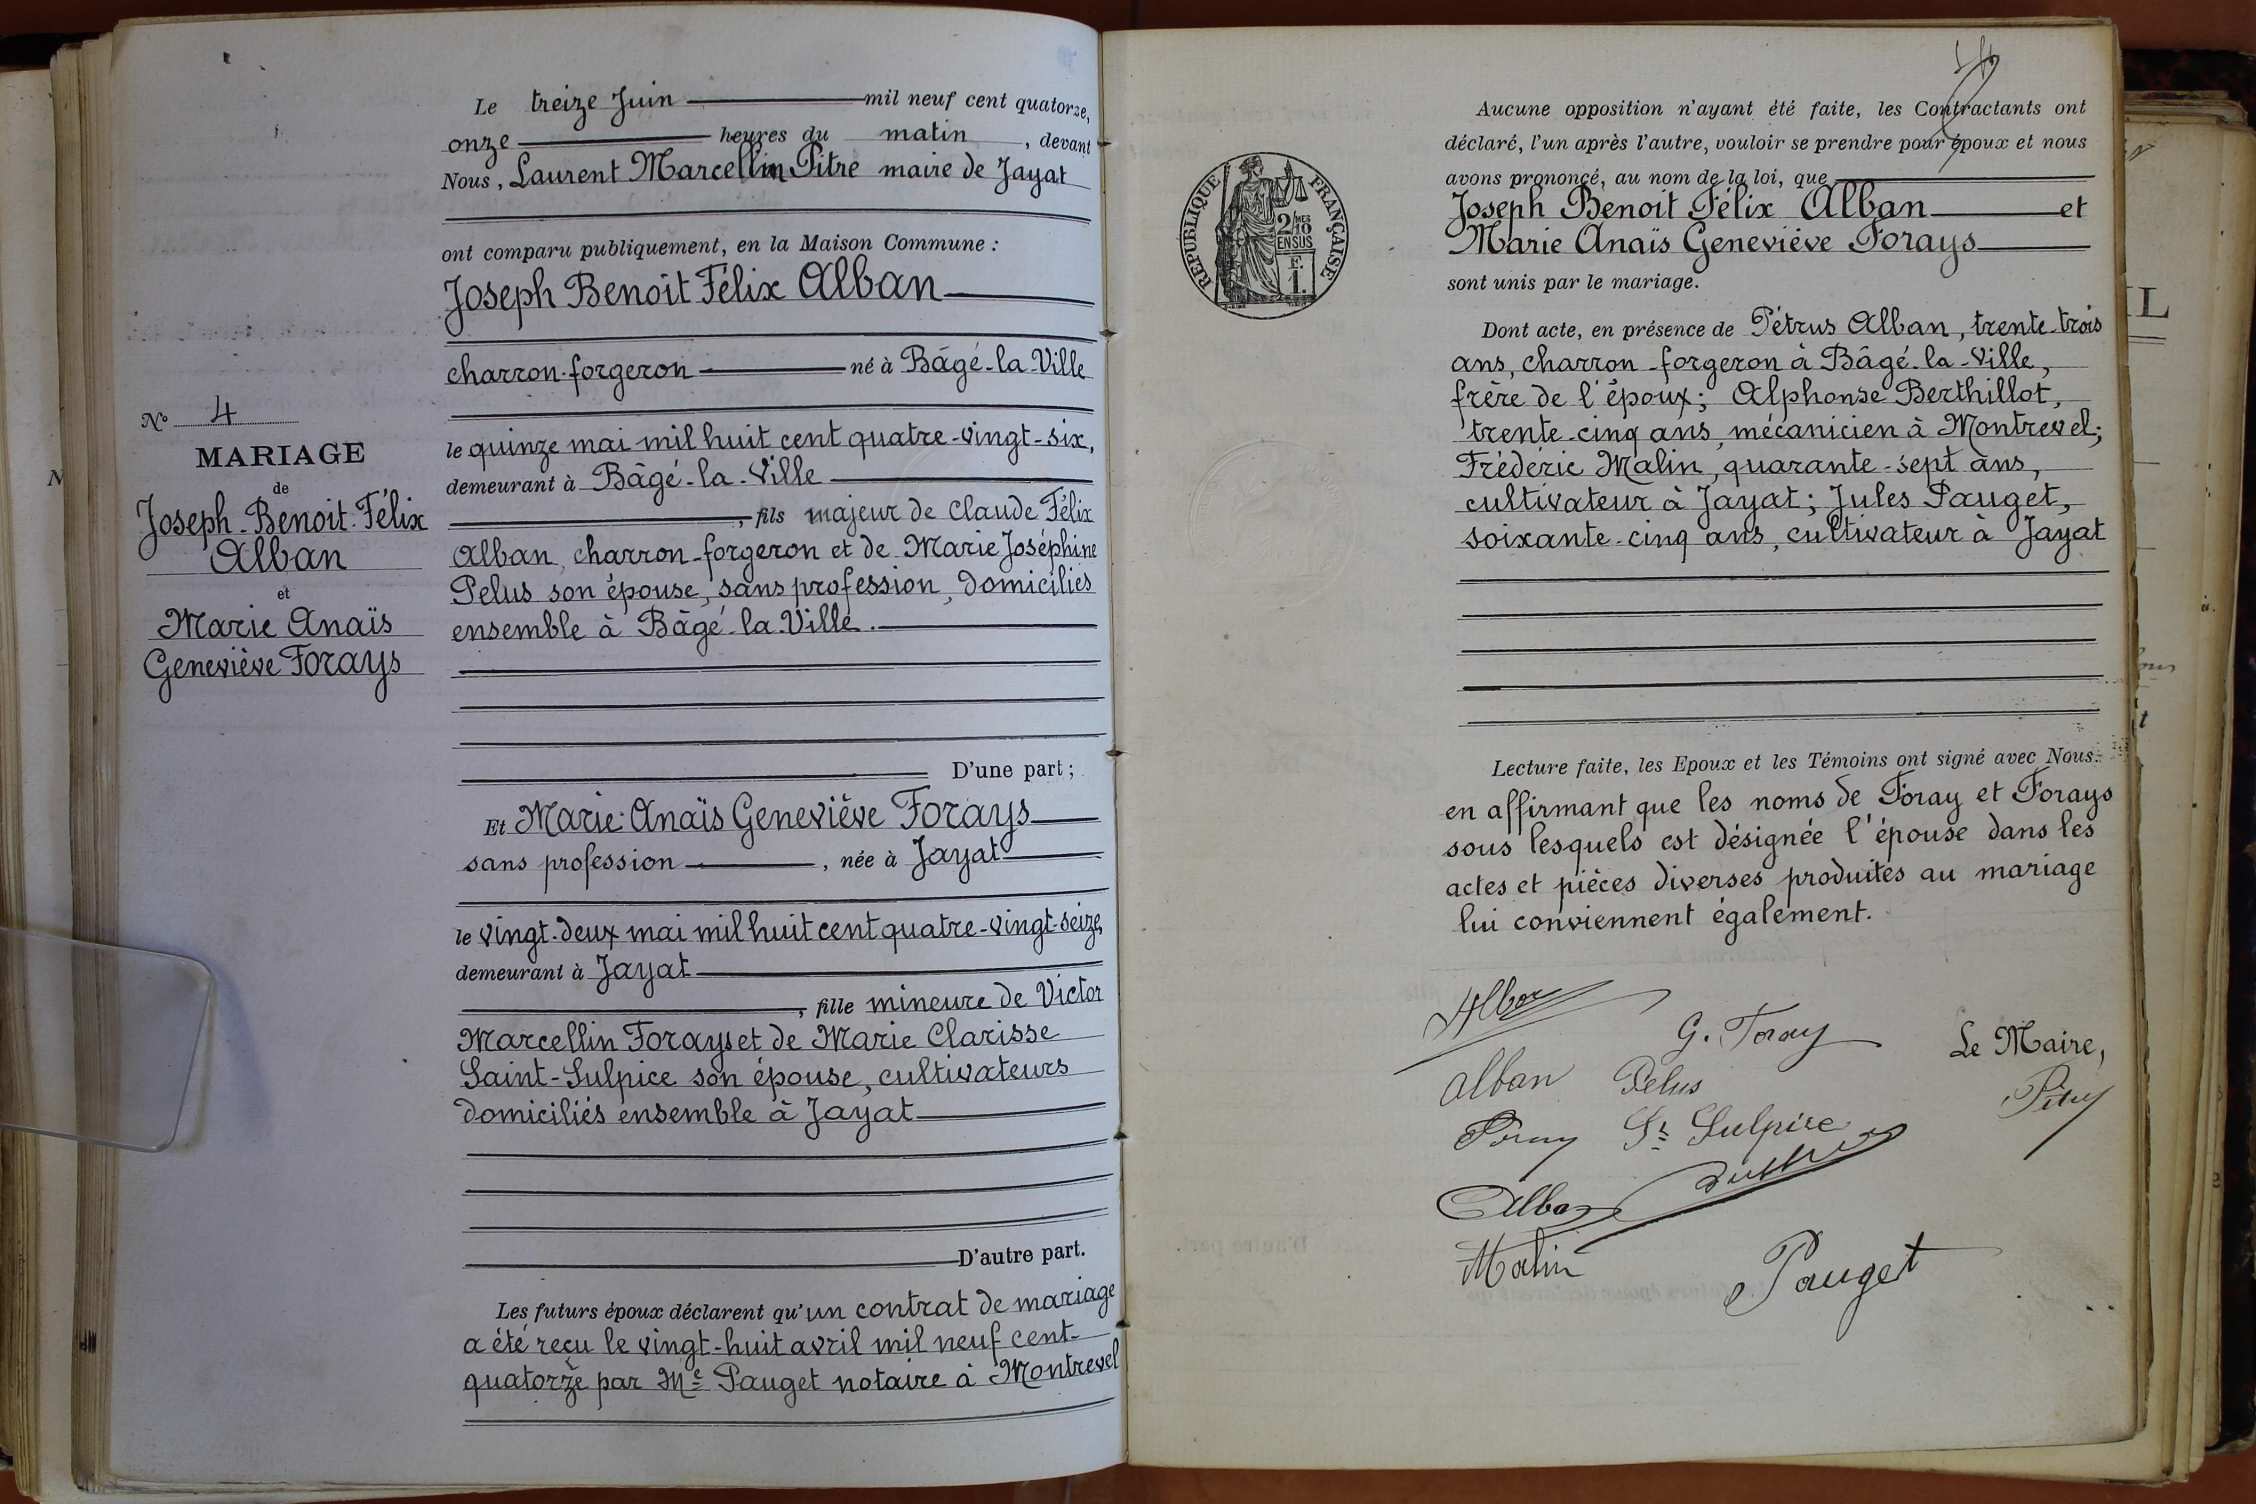 Le treize Juin mil neuf cent quatorze,
onze heures du matin, devant
Nous, Laurent Marcellin Pitre maire de Jayat
ont comparu publiquement, en la Maison Commune :
Joseph Benoit Félix Alban
charron-forgeron né à Bâgé-la-Ville
le quinze mai mil huit cent quatre-vingt-six,
demeurant à Bâgé-la-Ville
, fils majeur de Claude Félix
Alban, charron-forgeron et de Marie Joséphine
Pelus son épouse, sans profession, domiciliés
ensemble à Bâgé-la-Ville.
D'une part ;
Et Marie-Anaïs Geneviève Forays
sans profession, née à Jayat
le vingt-deux mai mil huit cent quatre-vingt-seize,
demeurant à Jayat
, fille mineure de Victor
Marcellin Forays et de Marie Clarisse
Saint-Sulpice son épouse, cultivateurs
domiciliés ensemble à Jayat
D'autre part.
Les futurs époux déclarent qu'un contrat de mariage
a été reçu le vingt-huit avril mil neuf cent-
quatorze par Me Pauget notaire à Montrevel
No 4
MARIAGE
de
Joseph-Benoit-Félix
Alban
et
Marie Anaïs
Geneviève Forays
RÉPUBLIQUE FRANÇAISE
2/10 MES
EN SUS
F.
1.
Aucune opposition n'ayant été faite, les Contractants ont
déclaré, l'un après l'autre, vouloir se prendre pour époux et nous
avons prononcé, au nom de la loi, que
Joseph Benoit Félix Alban et
Marie Anaïs Geneviève Forays
sont unis par le mariage.
Dont acte, en présence de Pétrus Alban, trente-trois
ans, charron-forgeron à Bâgé-la-Ville,
frère de l'époux; Alphonse Berthillot,
trente-cinq ans, mécanicien à Montrevel;
Frédéric Malin, quarante-sept ans,
cultivateur à Jayat; Jules Pauget,
soixante-cinq ans, cultivateur à Jayat
Lecture faite, les Epoux et les Témoins ont signé avec Nous.
en affirmant que les noms de Foray et Forays
sous lesquels est désignée l'épouse dans les
actes et pièces diverses produites au mariage
lui conviennent également.
Alban
G. Foray
Le Maire,
Alban Pelus
Pitre
Foray St Sulpice
Alban
Malin
Pauget